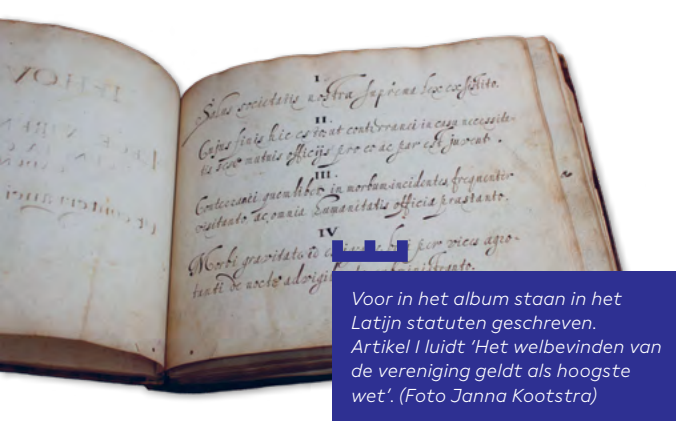 I
Salus societatis nostra suprema lex existito.
II.
Cujus finis hic esto, ut conterranei in casu necessita-
tis sese mutuis officijs pro eo ac par est juvent.
III.
Conterranei quemlibet in morbum incidentes frequenter
visitanto, ac omnia humanitatis officia præstanto.
IV
Morbi gravitate id per vices aegro-
tanti de nocte
Voor in het album staan in het
Latijn statuten geschreven.
Artikel I luidt ‘Het welbevinden van
de vereniging geldt als hoogste
wet’. (Foto Janna Kootstra)